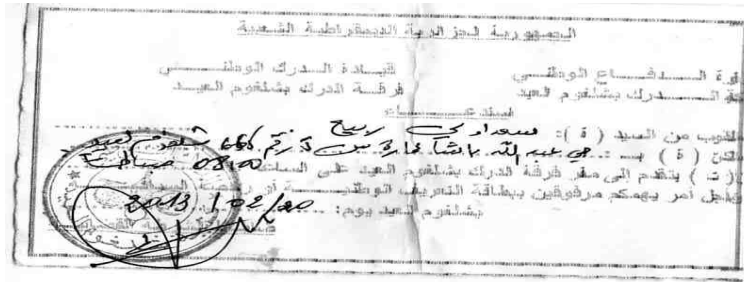 الجمهورية الجزائرية الديمقراطية الشعبية
وزارة الـدفـاع الوطنـي قيـادة الـدرك الوطنـي
الـدرك بشلغوم العيد فرقـة الدرك بشلغوم العيـد
استدعـــاء
مطلوب من السيد ( ة ): سعداوي ربيح
الساكن ( ة ) بـ: حي عبد الله باشا عمارة رقم
( ت ) يتقدم إلى مقر فرقة الدرك بشلغوم العيد على الساعة 08.00 صباحا
لأجل أمر يهمكم مرفوقين ببطاقة التعريف الوطنيـة أو رخصة السياقـة
بشلغوم العيد يوم: 2013/02/20